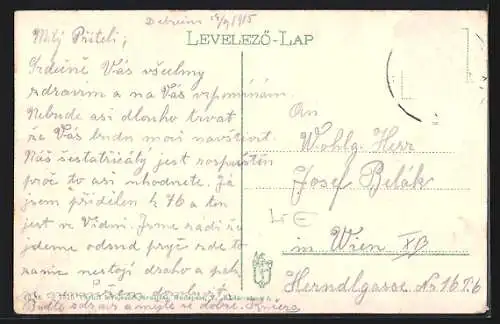 Debrecin 15/9 1915
LEVELEZŐ-LAP
Milý Příteli,
Srdečně Vás všechny
zdravím a na Vás vzpomínám.
Nebude asi dlouho trvat
že Vás budu moci navštívit.
Náš šestatřicátý jest rozpuštěn
proč to asi uhodnete. Já
jsem přidělen k 76 a ten
jest ve Vídni. Jsme rádi že
jdeme odsud pryč zde to
za nic nestojí draho a pak
Buďte zdráv a mějte se dobře.
An
Wohlg. Herr
Josef Belák
in Wien XII
Herndlgasse No 16 T. 6